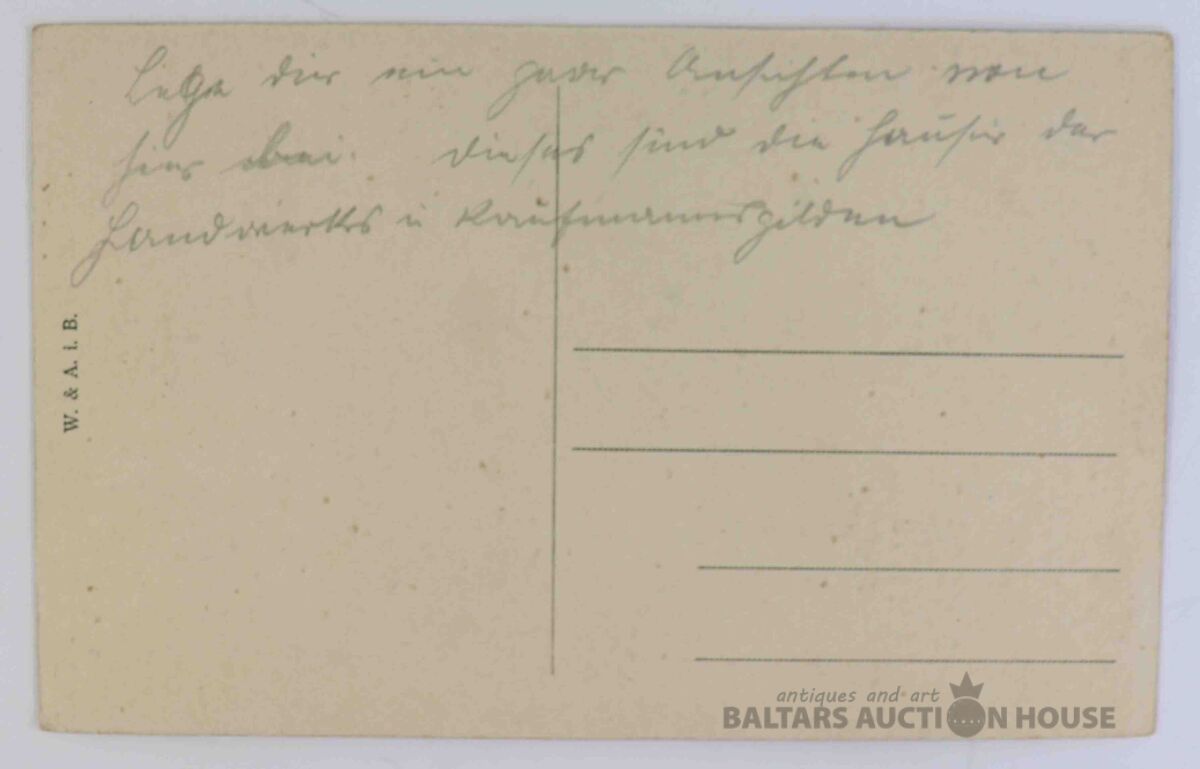 Lege dir ein paar Ansichten von
hier bei. Dieses sind die Häuser der
Handwerks u Kaufmannsgilden
W. & A. i. B.
antiques and art
BALTARS AUCTION HOUSE